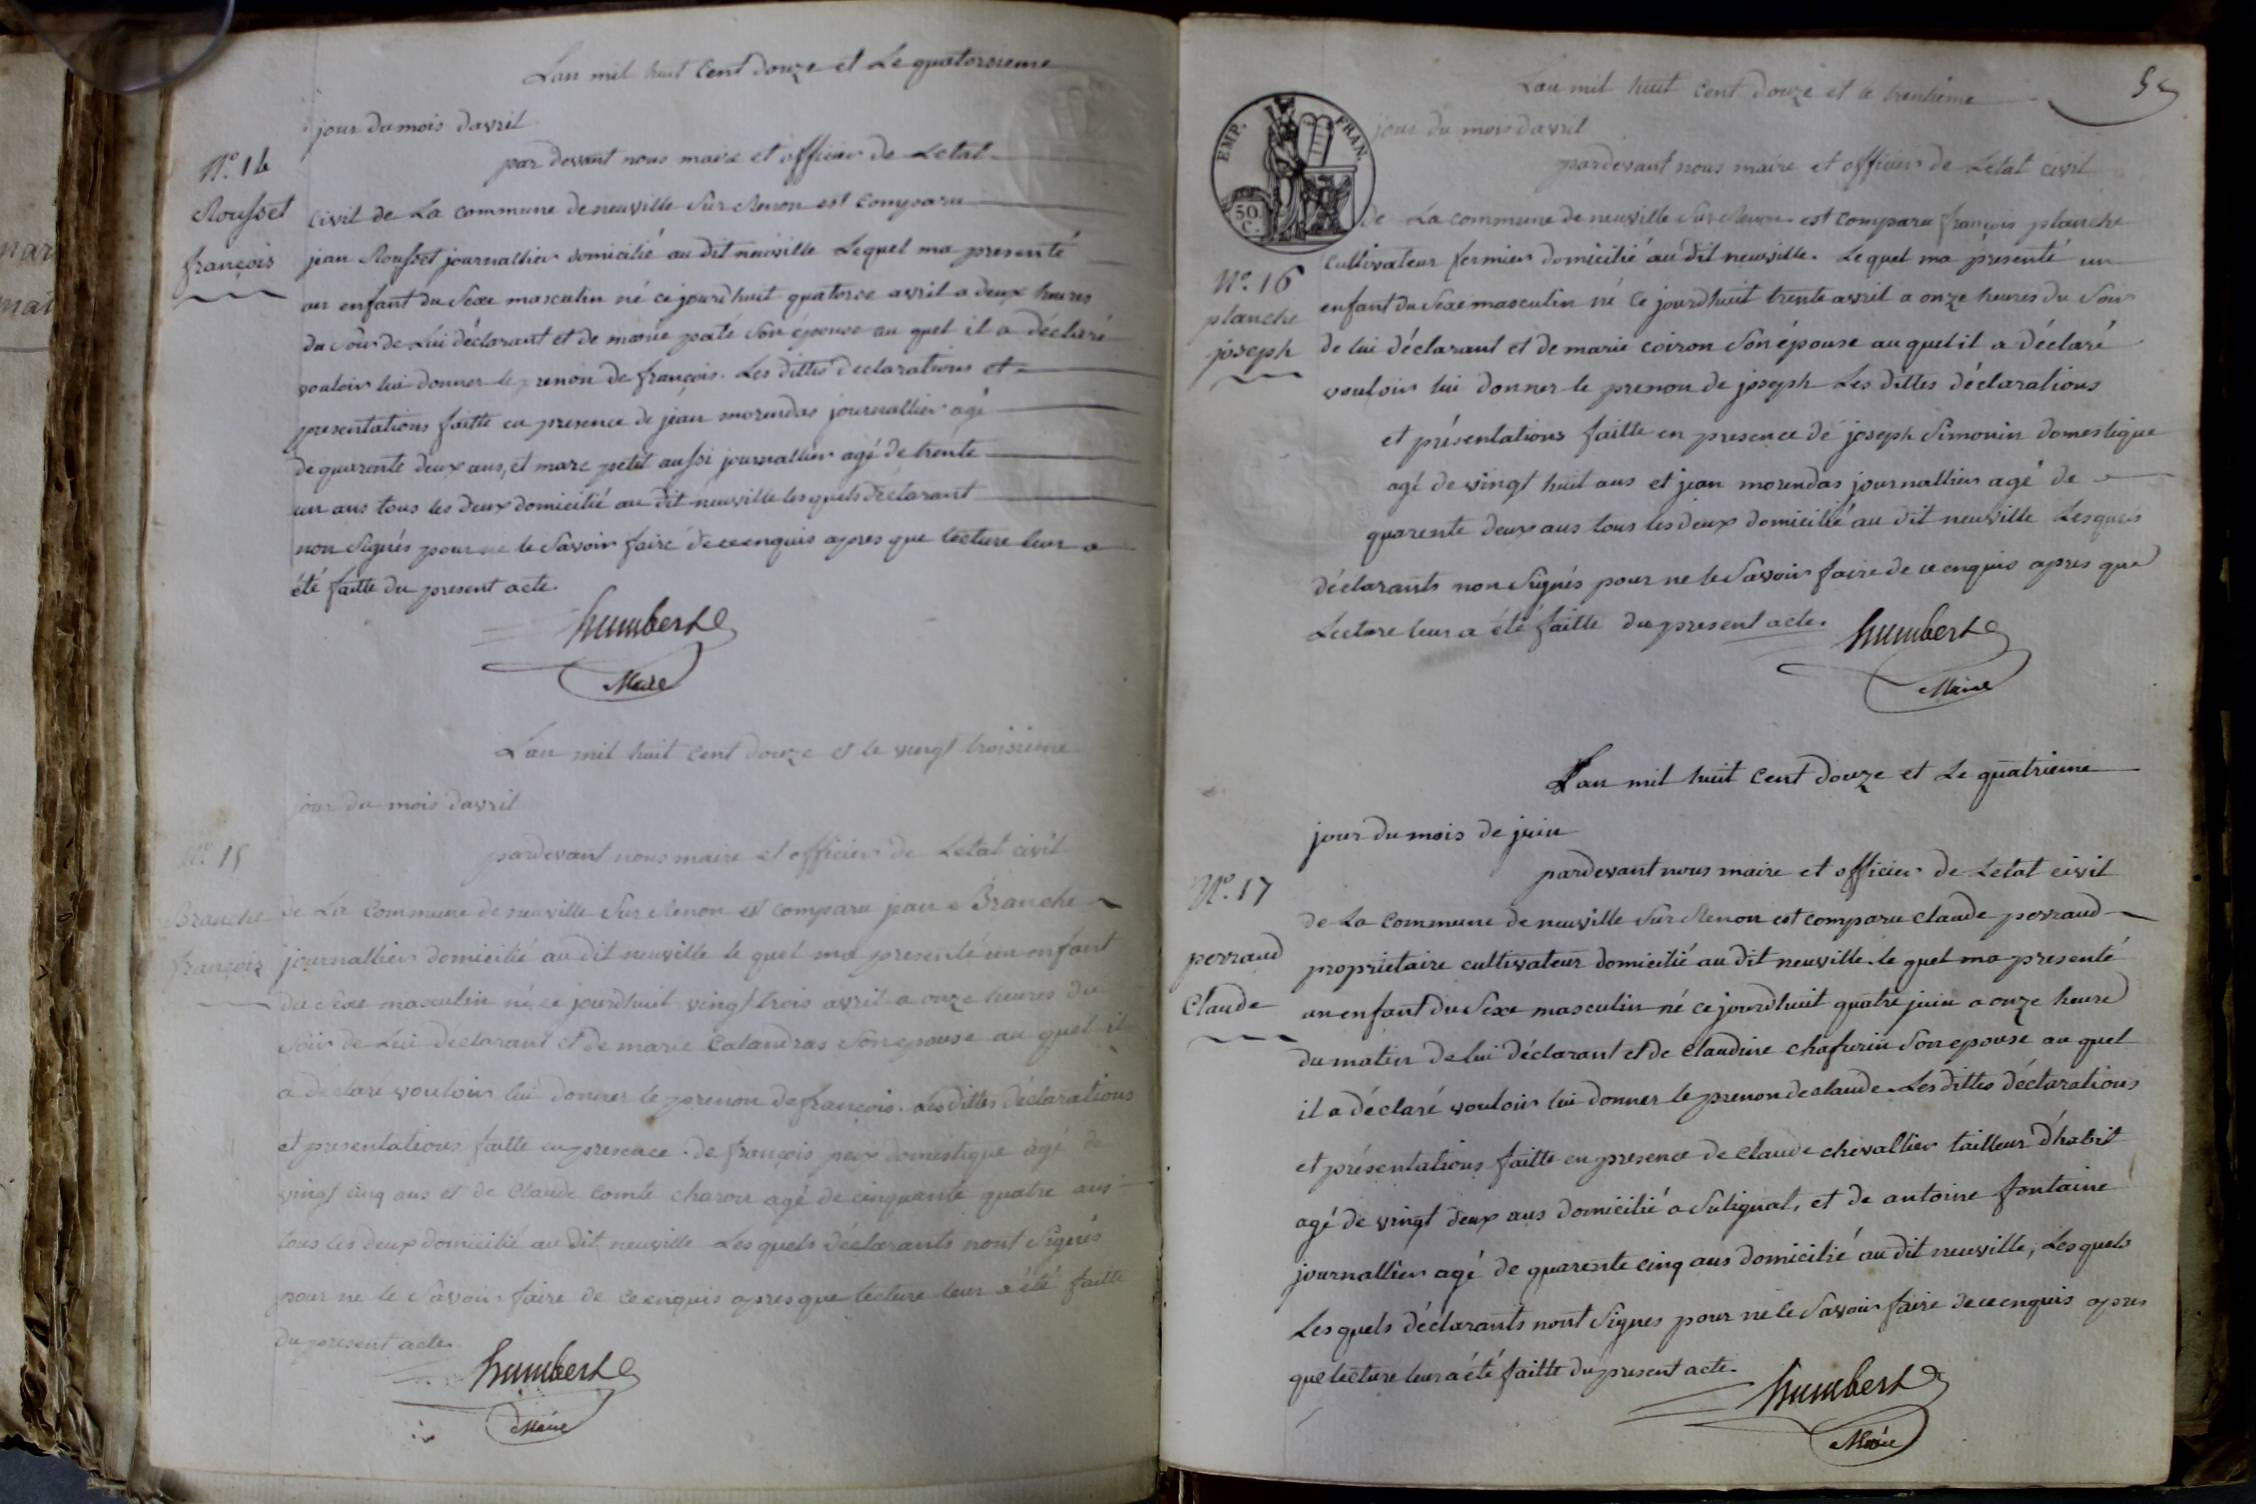 Lan mil huit Cent douze et Le quatorsieme
jour du mois davril
par devant nous maire et officier de Letat
N.o 14
Rousset
françois
Civil de La Commune de neuville Sur Renon est Comparu
jean Rousset journallier domicilié au dit neuville Lequel ma presenté
un enfant du Sexe masculin né ce jourdhuit quatorse avril a deux heures
du Soir de Lui déclarant et de marie paté Son épouse au quel il a déclaré
vouloir lui donner le prenon de françois. Les dittes declarations et
presentations faitte en presence de jean morundas journallier agé
de quarente deux ans, et marc petit aussi journallier agé de trente
un ans tous les deux domicilié au dit neuville lesquels déclarant
non Signés pour ne le Savoir faire de ce enquis apres que lecture leur a
été faitte du present acte.
humbert
Maire
Lan mil huit Cent douze et le vingt troisieme
jour du mois davril
pardevant nous maire et officier de Letat civil
N.o 15
Branche
françois
de La Commune de neuville Sur Renon est comparu jean Branche
journallier domicilié au dit neuville le quel ma presenté un enfant
du Sexe masculin né ce jourdhuit vingt trois avril a onze heures du
Soir de Lui déclarant et de marie Calandras Son epouse au quel il
a déclaré vouloir lui donner le prenon de françois. Les dittes déclarations
et presentations faitte en presence de françois peix domestique agé de
vingt cinq ans et de Claude Comte charon agé de cinquante quatre ans
tous les deux domicilié au dit neuville Lesquels déclarants nont Signés
pour ne le Savoir faire de ce enquis apres que lecture leur a été faitte
du present acte.
humbert
Maire
55
Lan mil huit cent douze et le trentieme
jour du mois davril
pardevant nous maire et officier de Letat civil
EMP. FRAN.
50.
C.
N.o 16
planche
joseph
de La commune de neuville Sur Renon est comparu françois planche
cultivateur fermier domicilié au dit neuville. Lequel ma présenté un
enfant du Sexe masculin né Ce jourdhuit trente avril a onze heures du Soir
de lui déclarant et de marie coiron Son épouse au quel il a déclaré
vouloir lui donner le prenon de joseph Les dittes déclarations
et présentations faitte en presence de joseph Simonin domestique
agé de vingt huit ans et jean morundas journallier agé de
quarente deux ans tous les deux domicilié au dit neuville Lesquels
déclarants non Signés pour ne le Savoir faire de ce enquis apres que
Lecture leur a été faitte du present acte.
humbert
Maire
Lan mil huit Cent douze et Le quatrieme
jour du mois de juin
pardevant nous maire et officier de Letat civil
N.o 17
perraud
Claude
de La Commune de neuville Sur Renon est comparu claude perraud
proprietaire cultivateur domicilié au dit neuville. le quel ma presenté
un enfant du Sexe masculin né ce jourdhuit quatre juin a onze heure
du matin de lui déclarant et de Claudine chafurin Son epouse au quel
il a déclaré vouloir lui donner le prenon de claude. Les dittes déclarations
et présentations faitte en presence de claude chevallier tailleur dhabit
agé de vingt deux ans domicilié a Sulignat, et de antoine fontaine
journallier agé de quarente cinq ans domicilié au dit neuville, Lesquels
Lesquels déclarants nont Signes pour ne le Savoir faire de ce enquis apres
que lecture leur a été faitte du present acte.
humbert
Maire